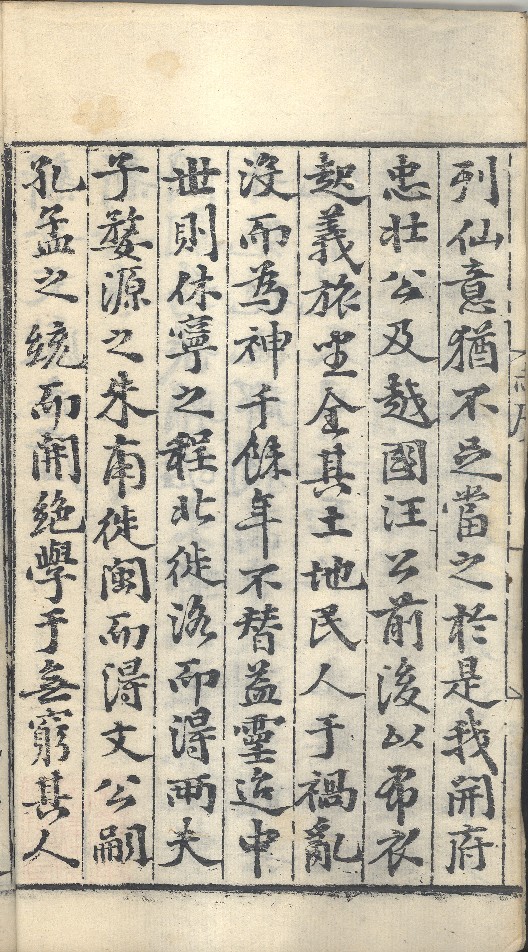 列仙意猶不足當之於是我開府
忠壯公及越國汪公前後以布衣
起義旅坐全其土地民人于禍亂
沒而為神千餘年不替益靈迨中
世則休寧之程北徙洛而得兩夫
子婺源之朱南徙閩而得文公嗣
孔孟之統而開絕學于無窮其人